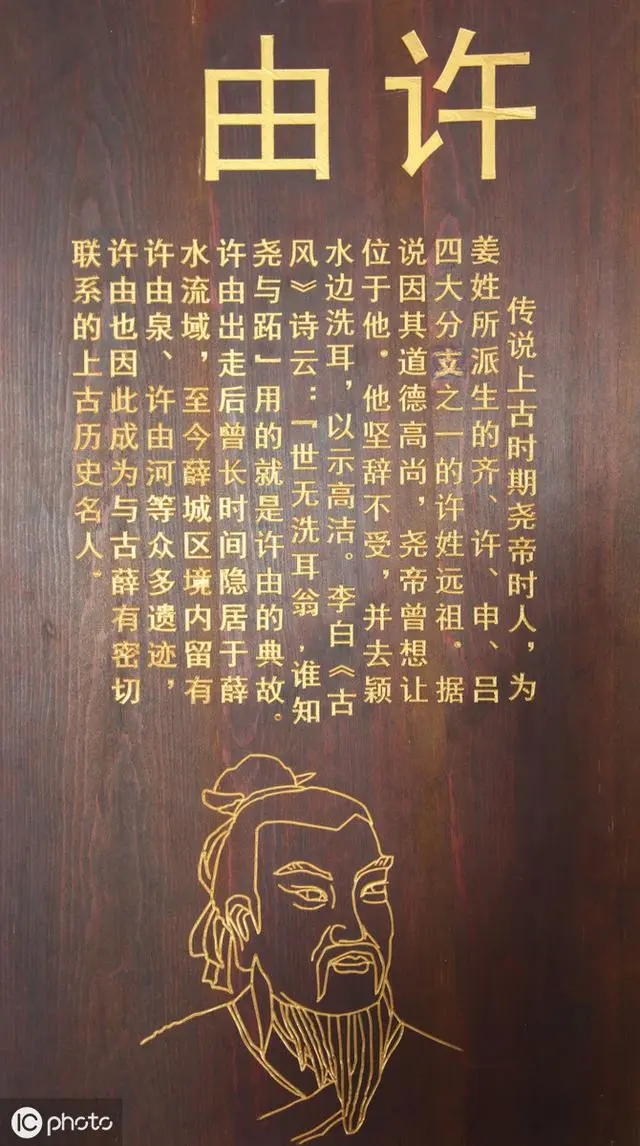 许由
传说上古时期尧帝时人，为
姜姓所派生的齐、许、申、吕
四大分支之一的许姓远祖。据
说因其道德高尚，尧帝曾想让
位于他。他坚辞不受，并去颖
水边洗耳，以示高洁。李白《古
风》诗云：「世无洗耳翁，谁知
尧与跖」用的就是许由的典故。
许由出走后曾长时间隐居于薛
水流域，至今薛城区境内留有
许由泉、许由河等众多遗迹，
许由也因此成为与古薛有密切
联系的上古历史名人。
IC photo